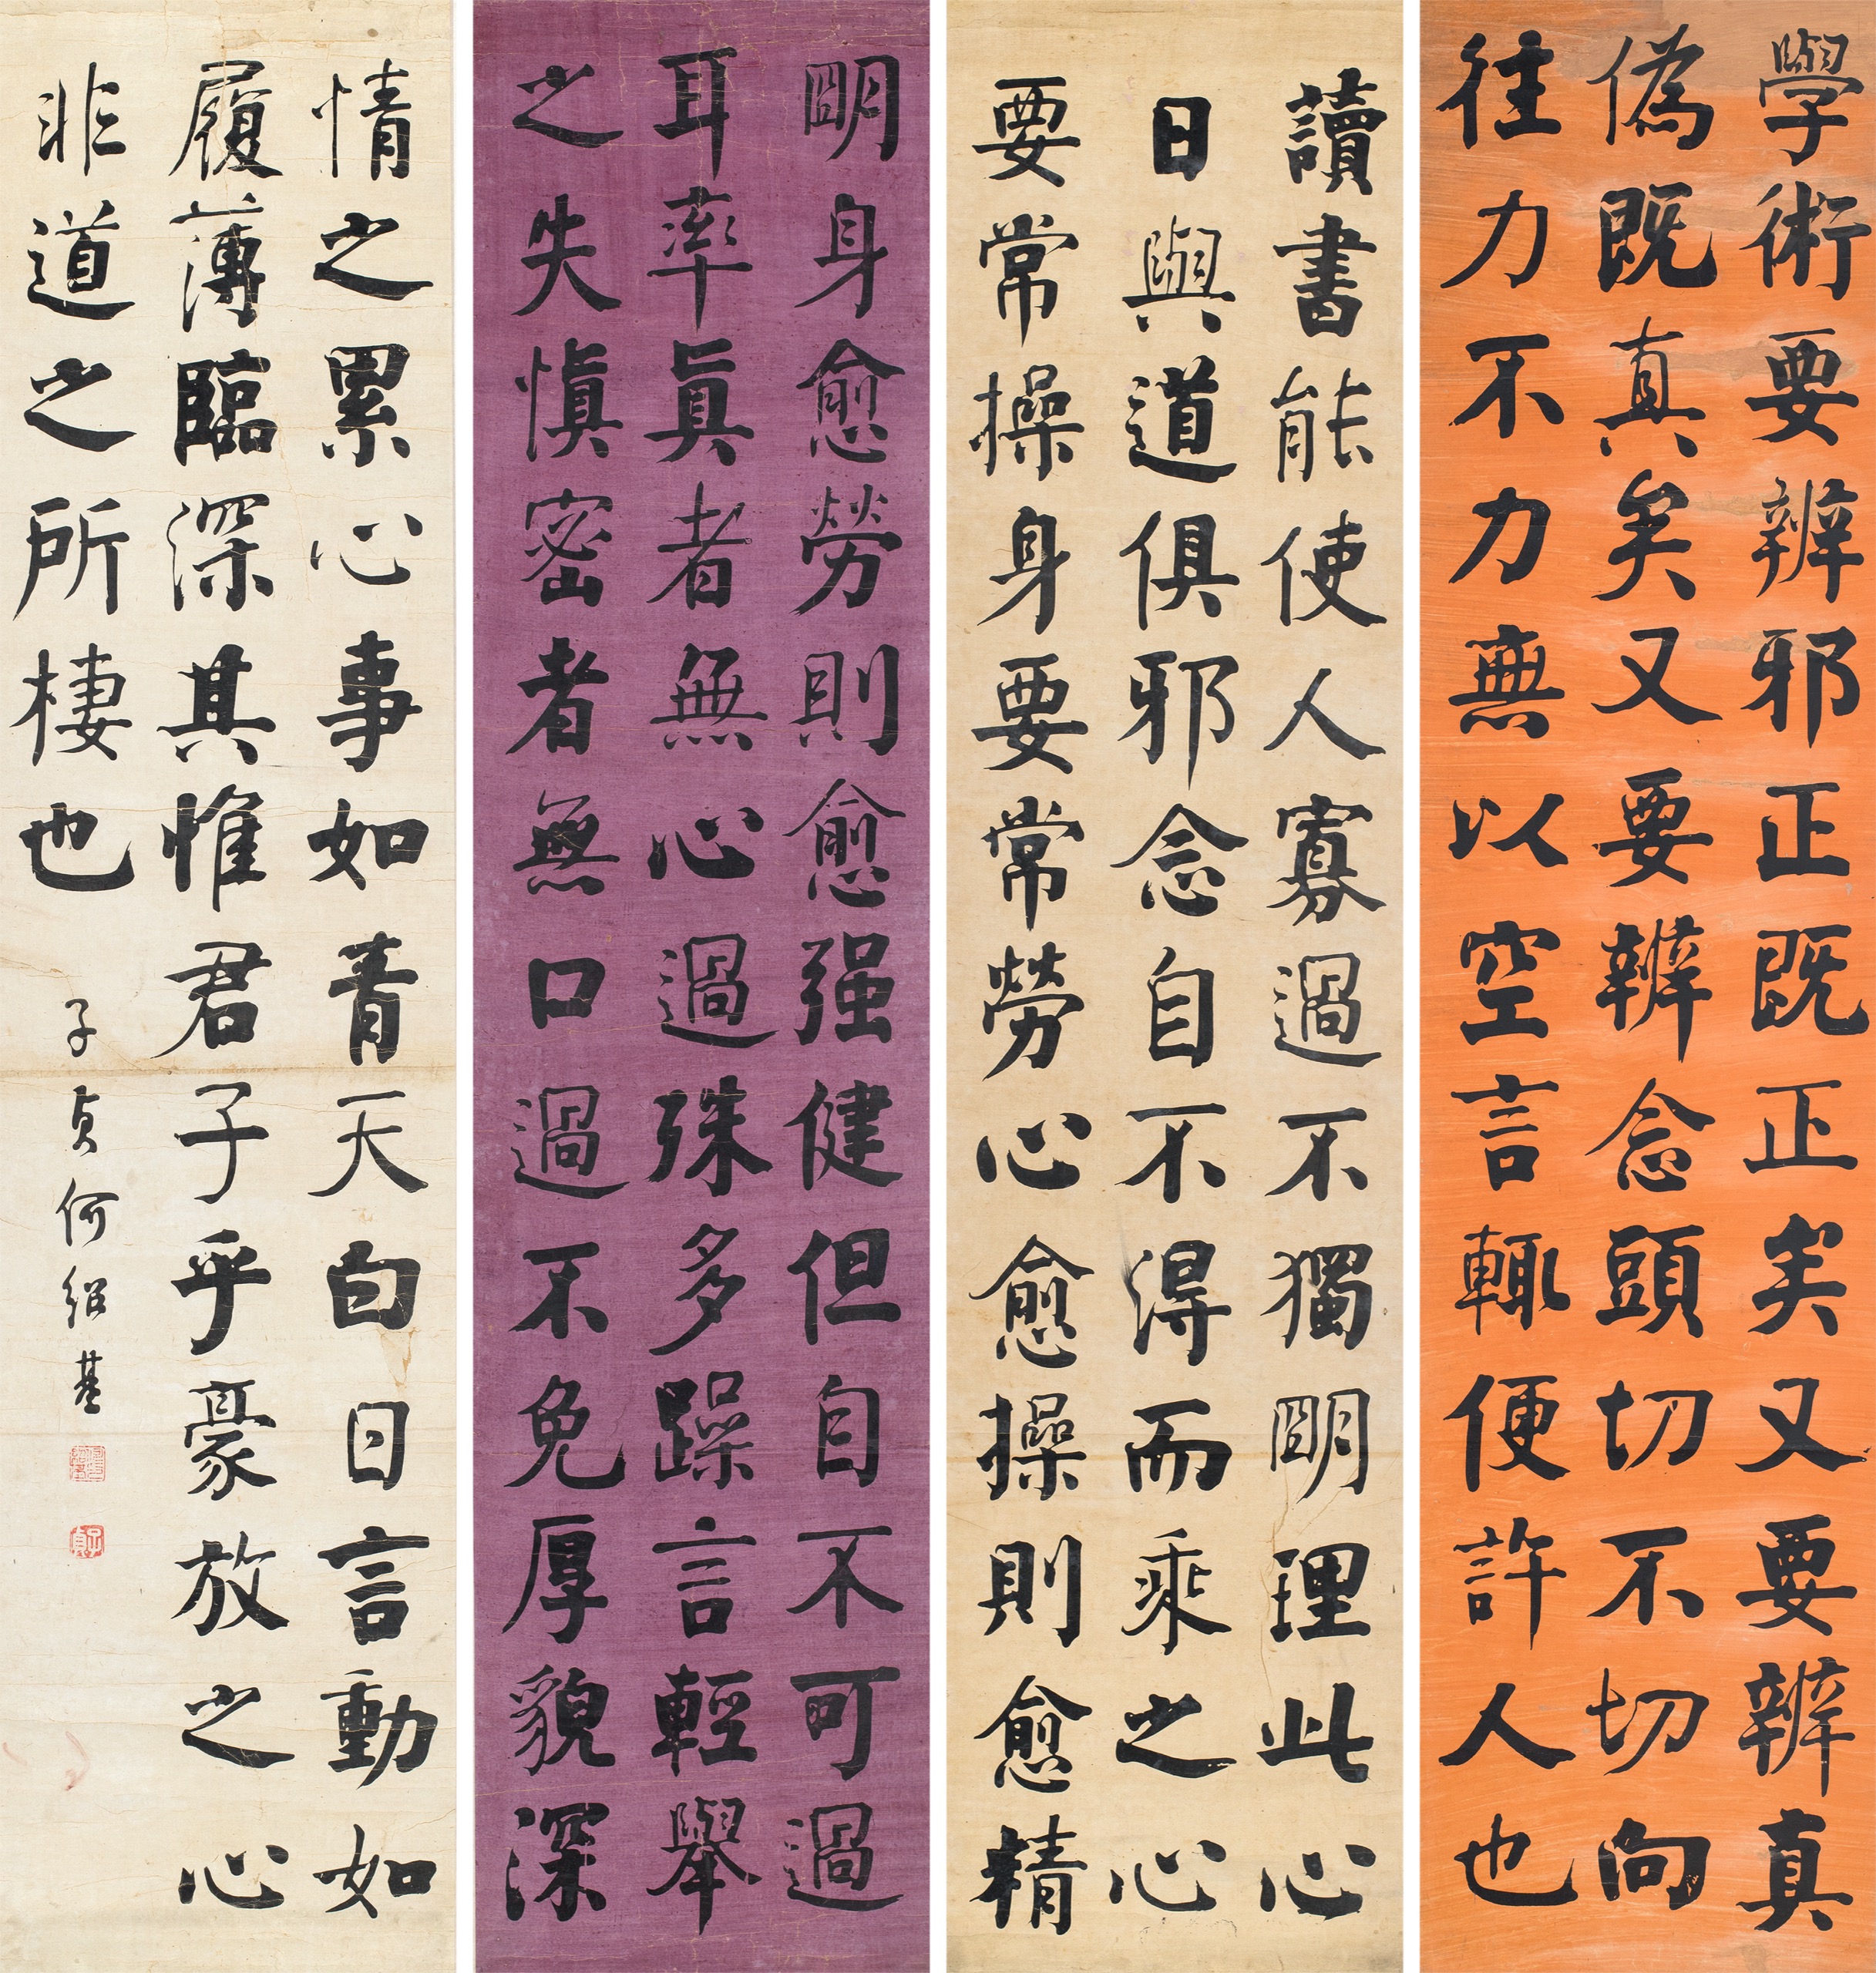 學術要辨邪正既正矣又要辨真
偽既真矣又要辨念頭切不切向
往力不力無以空言輒便許人也
讀書能使人寡過不獨明理此心
日與道俱邪念自不得而乘之心
要常操身要常勞心愈操則愈精
明身愈勞則愈强健但自不可過
耳率真者無心過殊多躁言輕舉
之失慎密者無口過不免厚貌深
情之累心事如青天白日言動如
履薄臨深其惟君子乎豪放之心
非道之所棲也
子貞何紹基
子貞